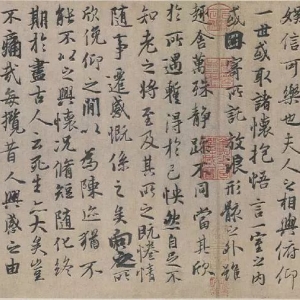 娛信可樂也夫人之相與俯仰
一世或取諸懷抱悟言一室之內
或因寄所託放浪形骸之外雖
趣舍萬殊靜躁不同當其欣
於所遇暫得於己怏然自足不
知老之將至及其所之既惓情
隨事遷感慨係之矣向之所
欣俛仰之閒以為陳迹猶不
能不以之興懷況脩短隨化終
期於盡古人云死生亦大矣豈
不痛哉每攬昔人興感之由